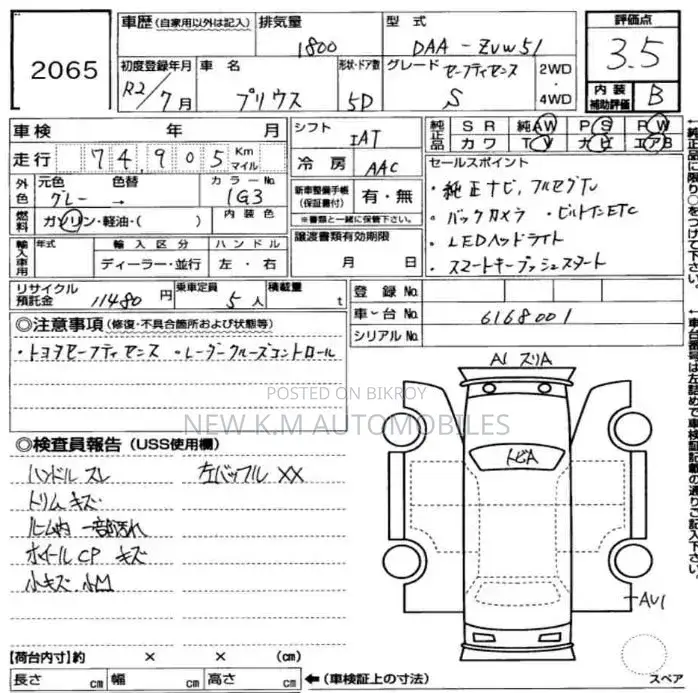 2065
車歴 (自家用以外は記入)
排気量 1800
型式 DAA - ZVW51
初度登録年月 R2/7月
車名 プリウス
形状・ドア数 5D
グレード セーフティセンス S
2WD・4WD
評価点 3.5
内装補助評価 B
車検 年 月
走行 74,905 Km マイル
シフト IAT
冷房 AAC
純正品 SR 純AW PS PW
カワ TV ナビ エアB
外色 元色 グレー → 色替
カラーNo. 1G3
内装色
燃料 ガソリン・軽油・( )
新車整備手帳 (保証書付) 有・無
※書類と一緒に保管下さい。
セールスポイント
・純正ナビ、フルセグTV
・バックカメラ ・ビルトインETC
・LEDヘッドライト
・スマートキープッシュスタート
輸入車用 年式 輸入区分 ディーラー・並行
ハンドル 左・右
譲渡書類有効期限 月 日
リサイクル預託金 11480円
乗車定員 5人
積載量 t
登録No.
車台No. 6168001
シリアルNo.
◎注意事項 (修復・不具合箇所および状態等)
・トヨタセーフティセンス ・レーダークルーズコントロール
POSTED ON BIKROY
NEW K.M AUTOMOBILES
◎検査員報告 (USS使用欄)
ハンドル スレ 左バッフル XX
トリム キズ
ルーム内 一部汚れ
ホイールCP キズ
小キズ.小M
A1 スリA
トビA
AU1
スペア
【荷台内寸】約 × × (cm)
長さ cm 幅 cm 高さ cm ←(車検証上の寸法)
←純正品に限り○をつけて下さい。
←車台番号は左詰めで車検証記載の通りご記入下さい。